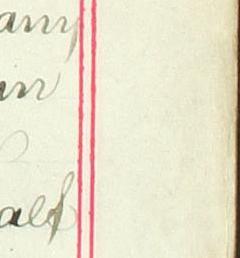 any
un
alf